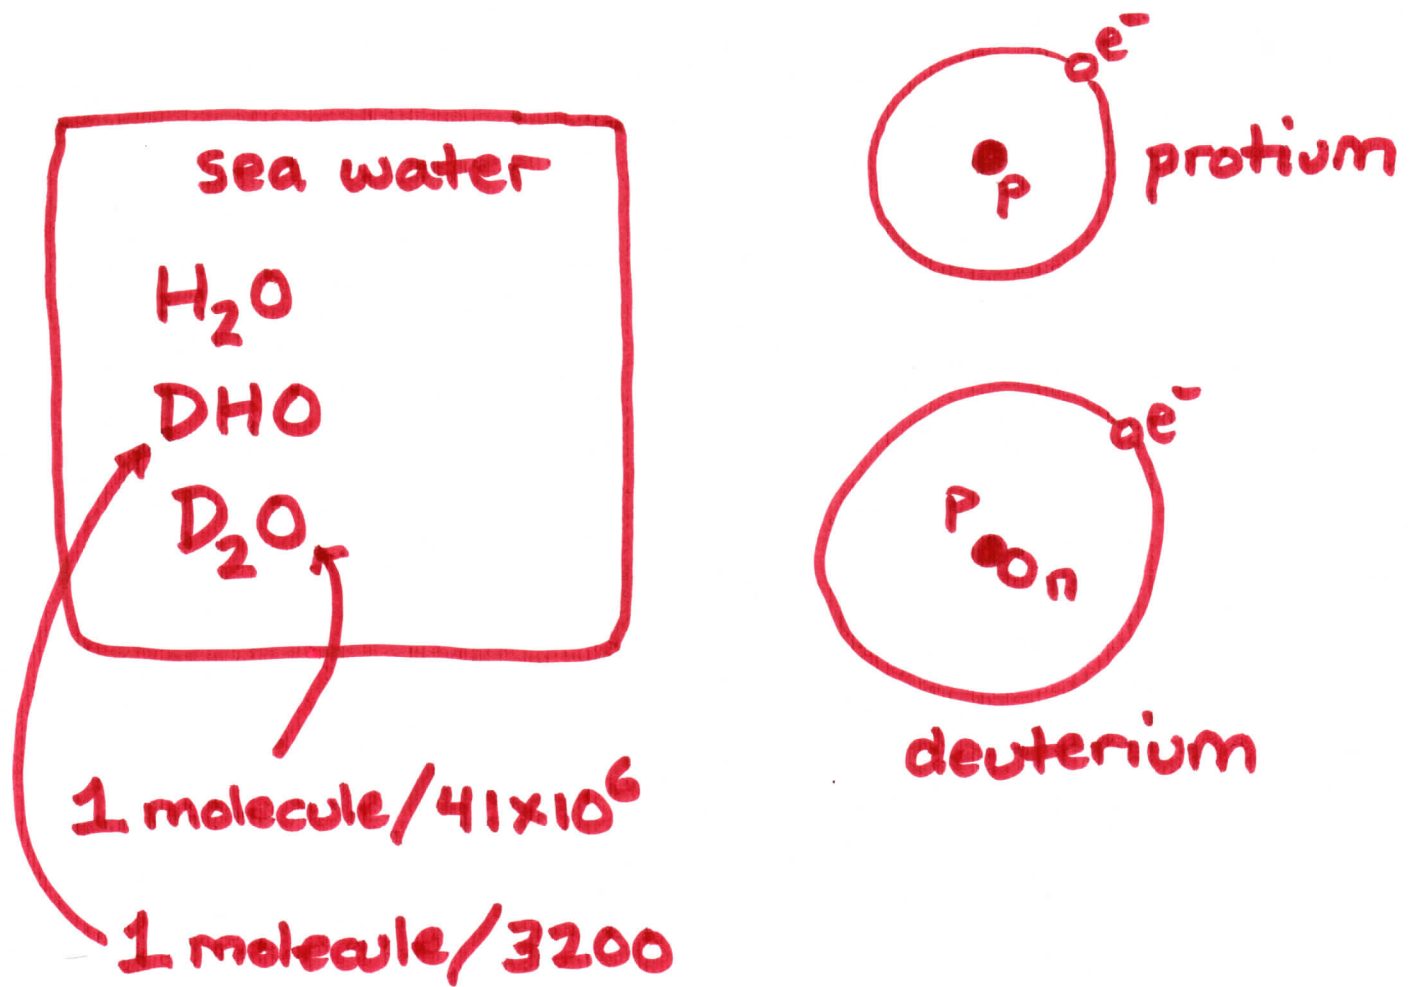 sea water
H₂O
DHO
D₂O
1 molecule/41x10⁶
1 molecule/3200
e⁻
p
protium
e⁻
p
n
deuterium